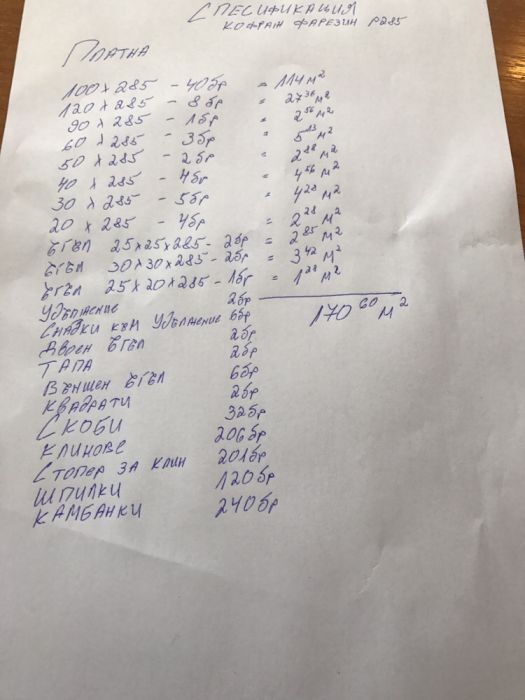 СПЕСИФИКАЦИЯ
КОФРАЖ ФАРЕЗИН P285
ПЛАТНА
100 x 285 - 40бр = 114 м²
120 x 285 - 8бр = 27³⁶ м²
90 x 285 - 1бр = 2⁵⁶ м²
60 x 285 - 3бр = 5¹³ м²
50 x 285 - 2бр = 2⁸⁸ м²
40 x 285 - 4бр = 4⁵⁶ м²
30 x 285 - 5бр = 4²⁸ м²
20 x 285 - 4бр = 2²⁸ м²
ЪГЪЛ 25x25x285 - 2бр = 2⁸⁵ м²
ЪГЪЛ 30x30x285 - 2бр = 3⁴² м²
ЪГЪЛ 25x20x285 - 1бр = 1²⁸ м²
УДЪЛЖЕНИЕ 2бр
СНАДКИ КЪМ УДЪЛЖЕНИЕ 6бр 170⁶⁰ м²
ДВОЕН ЪГЪЛ 2бр
ТАПА 2бр
ВЪНШЕН ЪГЪЛ 6бр
КВАДРАТИ 2бр
СКОБИ 325бр
КЛИНОВЕ 206бр
СТОПЕР ЗА КЛИН 201бр
ШПИЛКИ 120бр
КАМБАНКИ 240бр